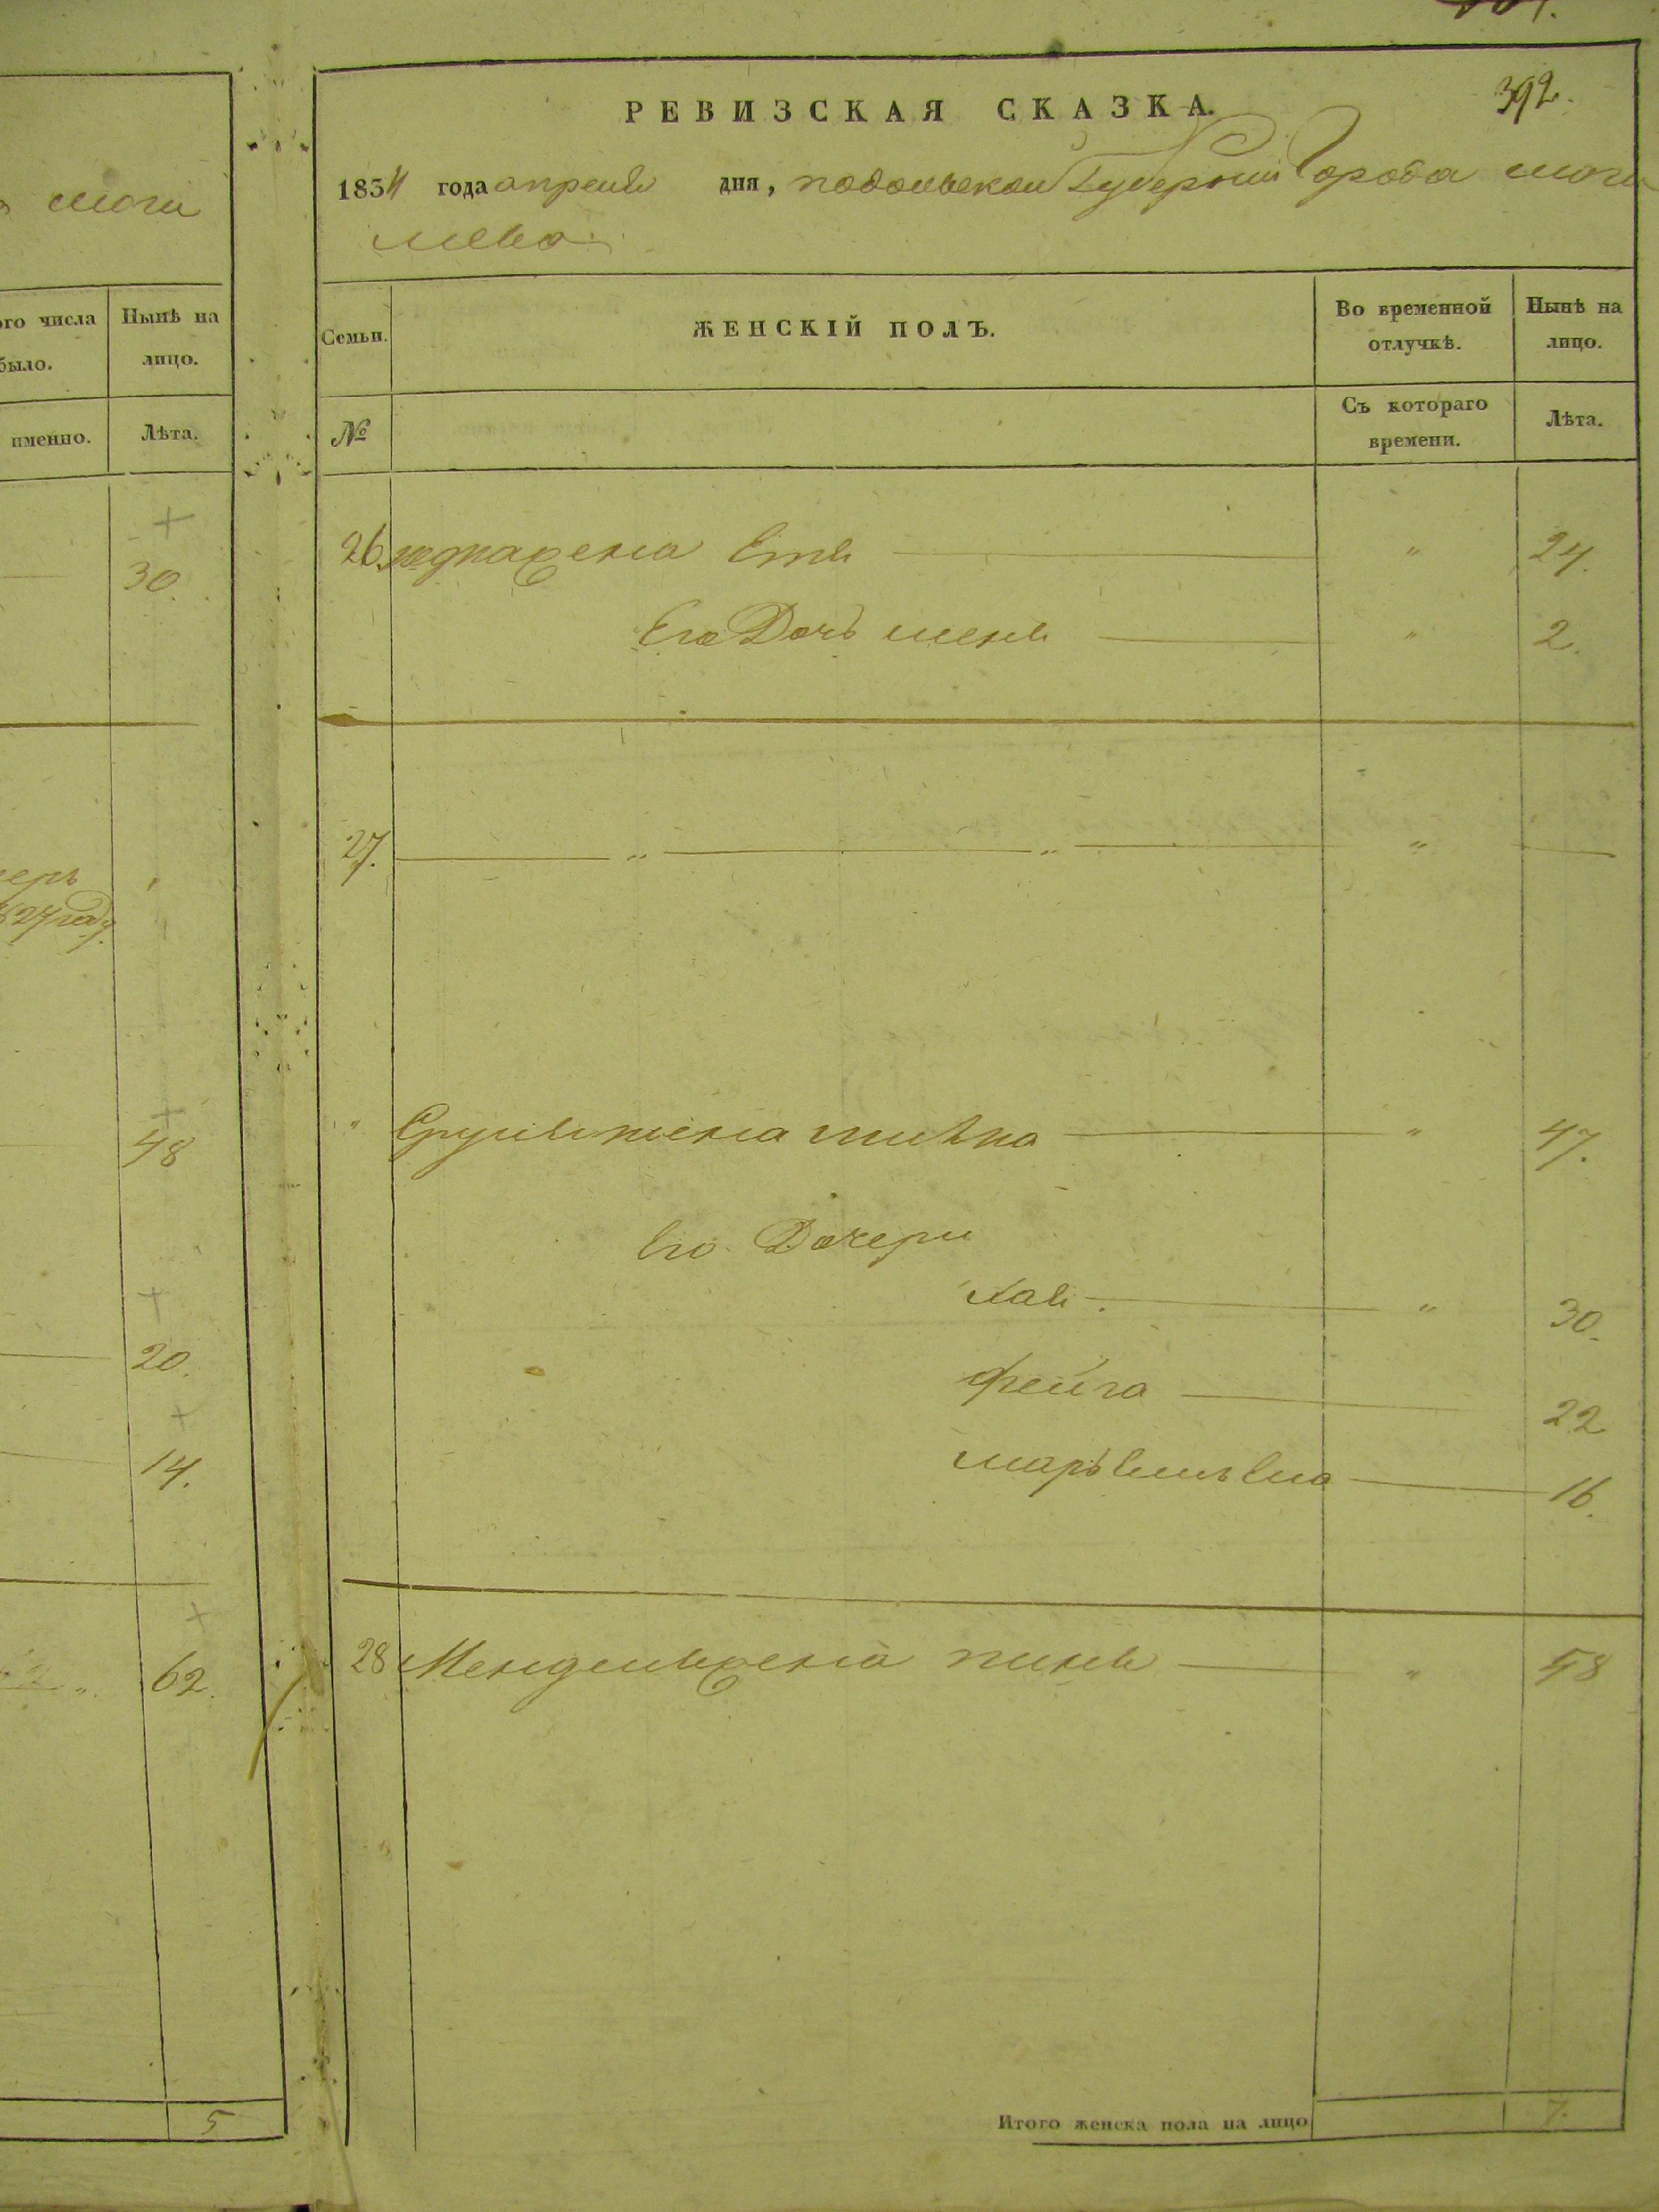 а моги
ого числа
было.
Нынѣ на
лицо.
именно.
Лѣта.
30.
27 году.
48
20.
14.
62.
5
392.
РЕВИЗСКАЯ СКАЗКА.
1834 года апреля дня, подольской Губернии Города моги
лева
Семьи.
ЖЕНСКІЙ ПОЛЪ.
Во временной
отлучкѣ.
Нынѣ на
лицо.
№
Съ котораго
времени.
Лѣта.
26. жена Етя " 24.
Его Дочь " 2.
27. " " " —
" жена " 47.
Его Дочери
Хая " 30.
фейга 22
16.
28 Менделя жена " 48
Итого женска пола на лицо 7.